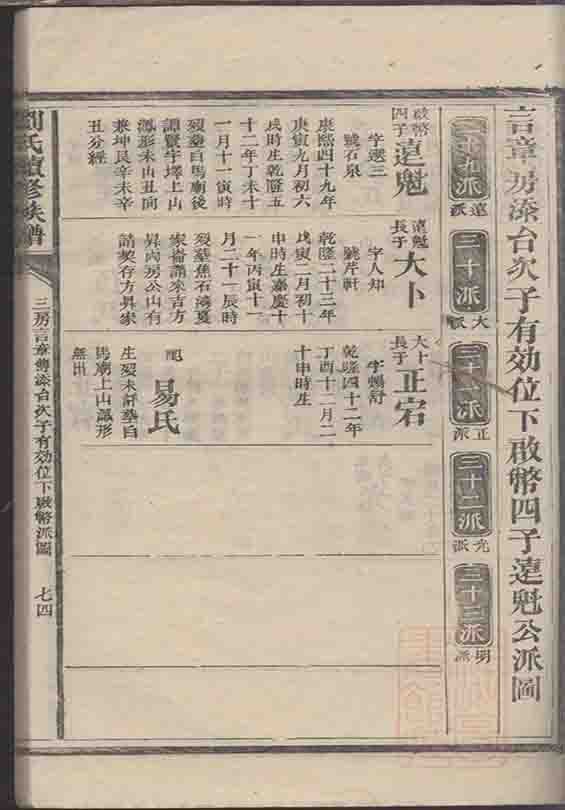 言章房添台次子有効位下啟幣四子遠魁公派圖
二十九派
遠派
三十派
大派
三十一派
正派
三十二派
光派
三十三派
明派
啟幣四子
遠魁
字選三
號石泉
康熙四十九年
庚寅九月初六
戌時生乾隆五
十二年丁未十
一月十一寅時
歿塟自馬廟後
譚覽宇塚上山
鳳形未山丑向
兼坤艮辛未辛
丑分經
遠魁長子
大卜
字人知
號芹軒
乾隆二十三年
戊寅二月初十
申時生嘉慶十
一年丙寅十一
月二十一辰時
歿塟焦石鴻戛
家崙譚來吉方
昇內房公山有
請契存方具家
大卜長子
正宕
字暢舒
乾隆四十二年
丁酉十二月二
十申時生
配
易氏
生歿未詳塟自
馬廟上山鳳形
無出
劉氏續修族譜
三房言章傳添台次子有効位下啟幣派圖
七四